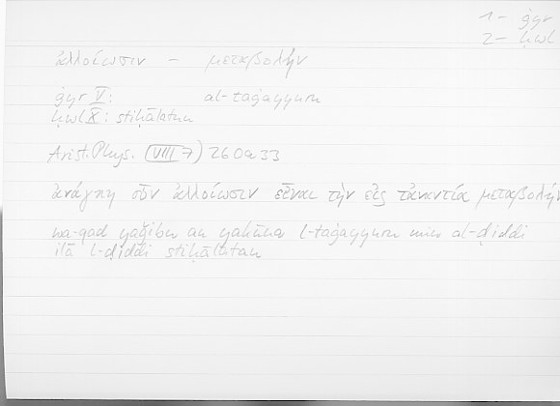 1 – ġyr
2 – ḥwl
ἀλλοίωσιν – μεταβολήν
ġyr V: al-taġayyuru
ḥwl X: stiḥālatun
Arist. Phys. (VIII 7) 260a33
ἀνάγκη οὖν ἀλλοίωσιν εἶναι τὴν εἰς τἀναντία μεταβολήν
wa-qad yaǧibu an yakūna l-taġayyuru min al-ḍiddi
ilā l-ḍiddi stiḥālatan